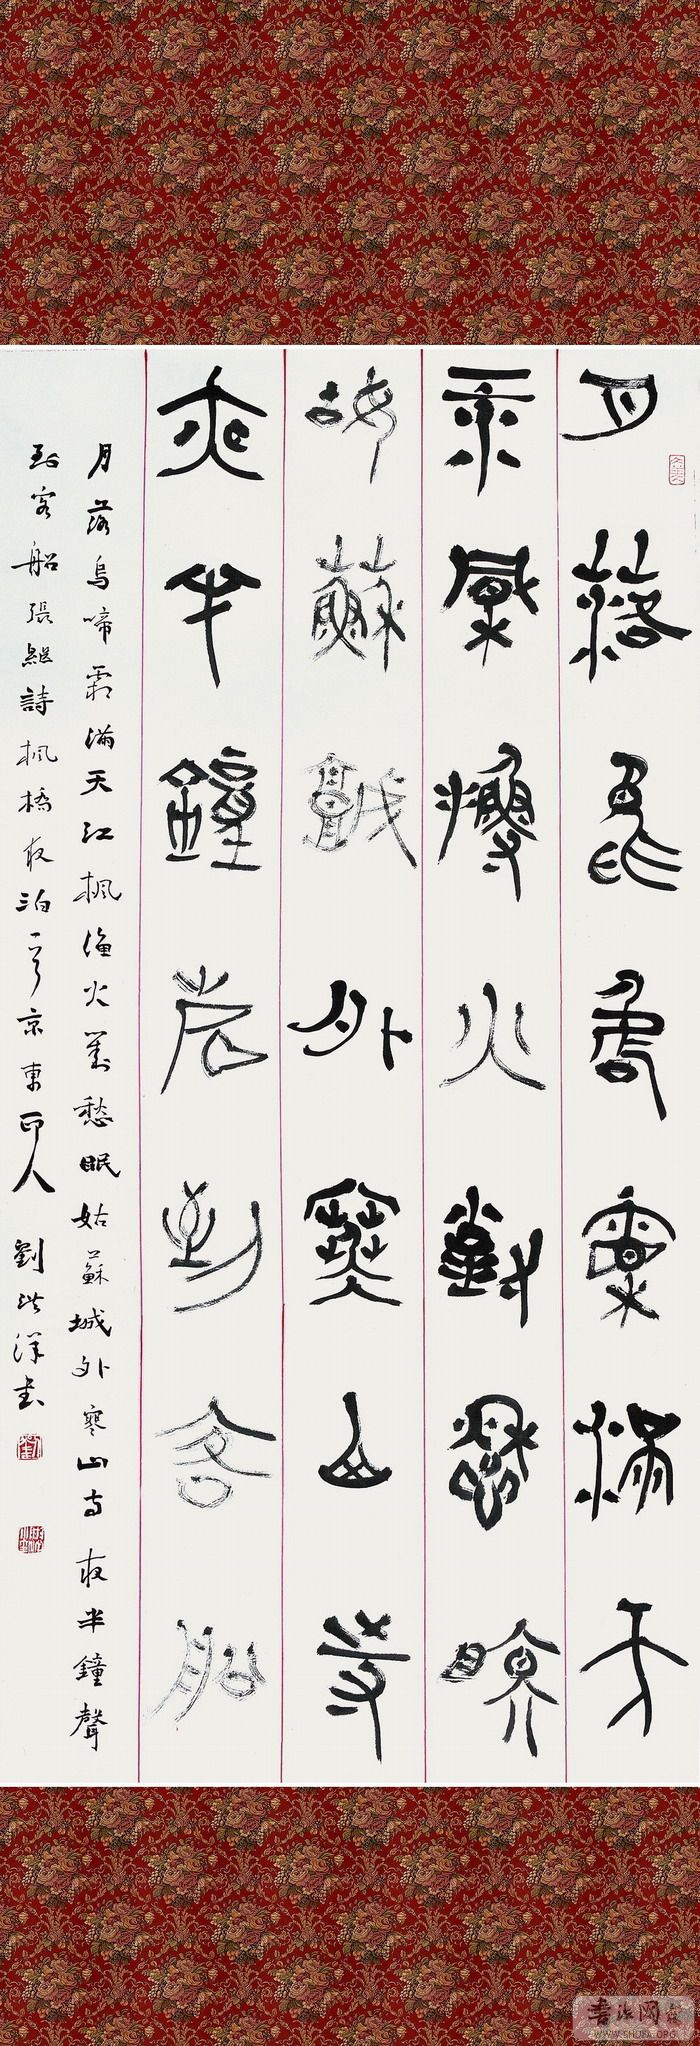 月落烏啼霜滿天
江楓漁火對愁眠
姑蘇城外寒山寺
夜半鐘聲到客船
月落烏啼霜滿天江楓漁火對愁眠姑蘇城外寒山寺夜半鐘聲
到客船張繼詩楓橋夜泊一首京東印人劉洪洋書
書法网
WWW.SHUFA.ORG